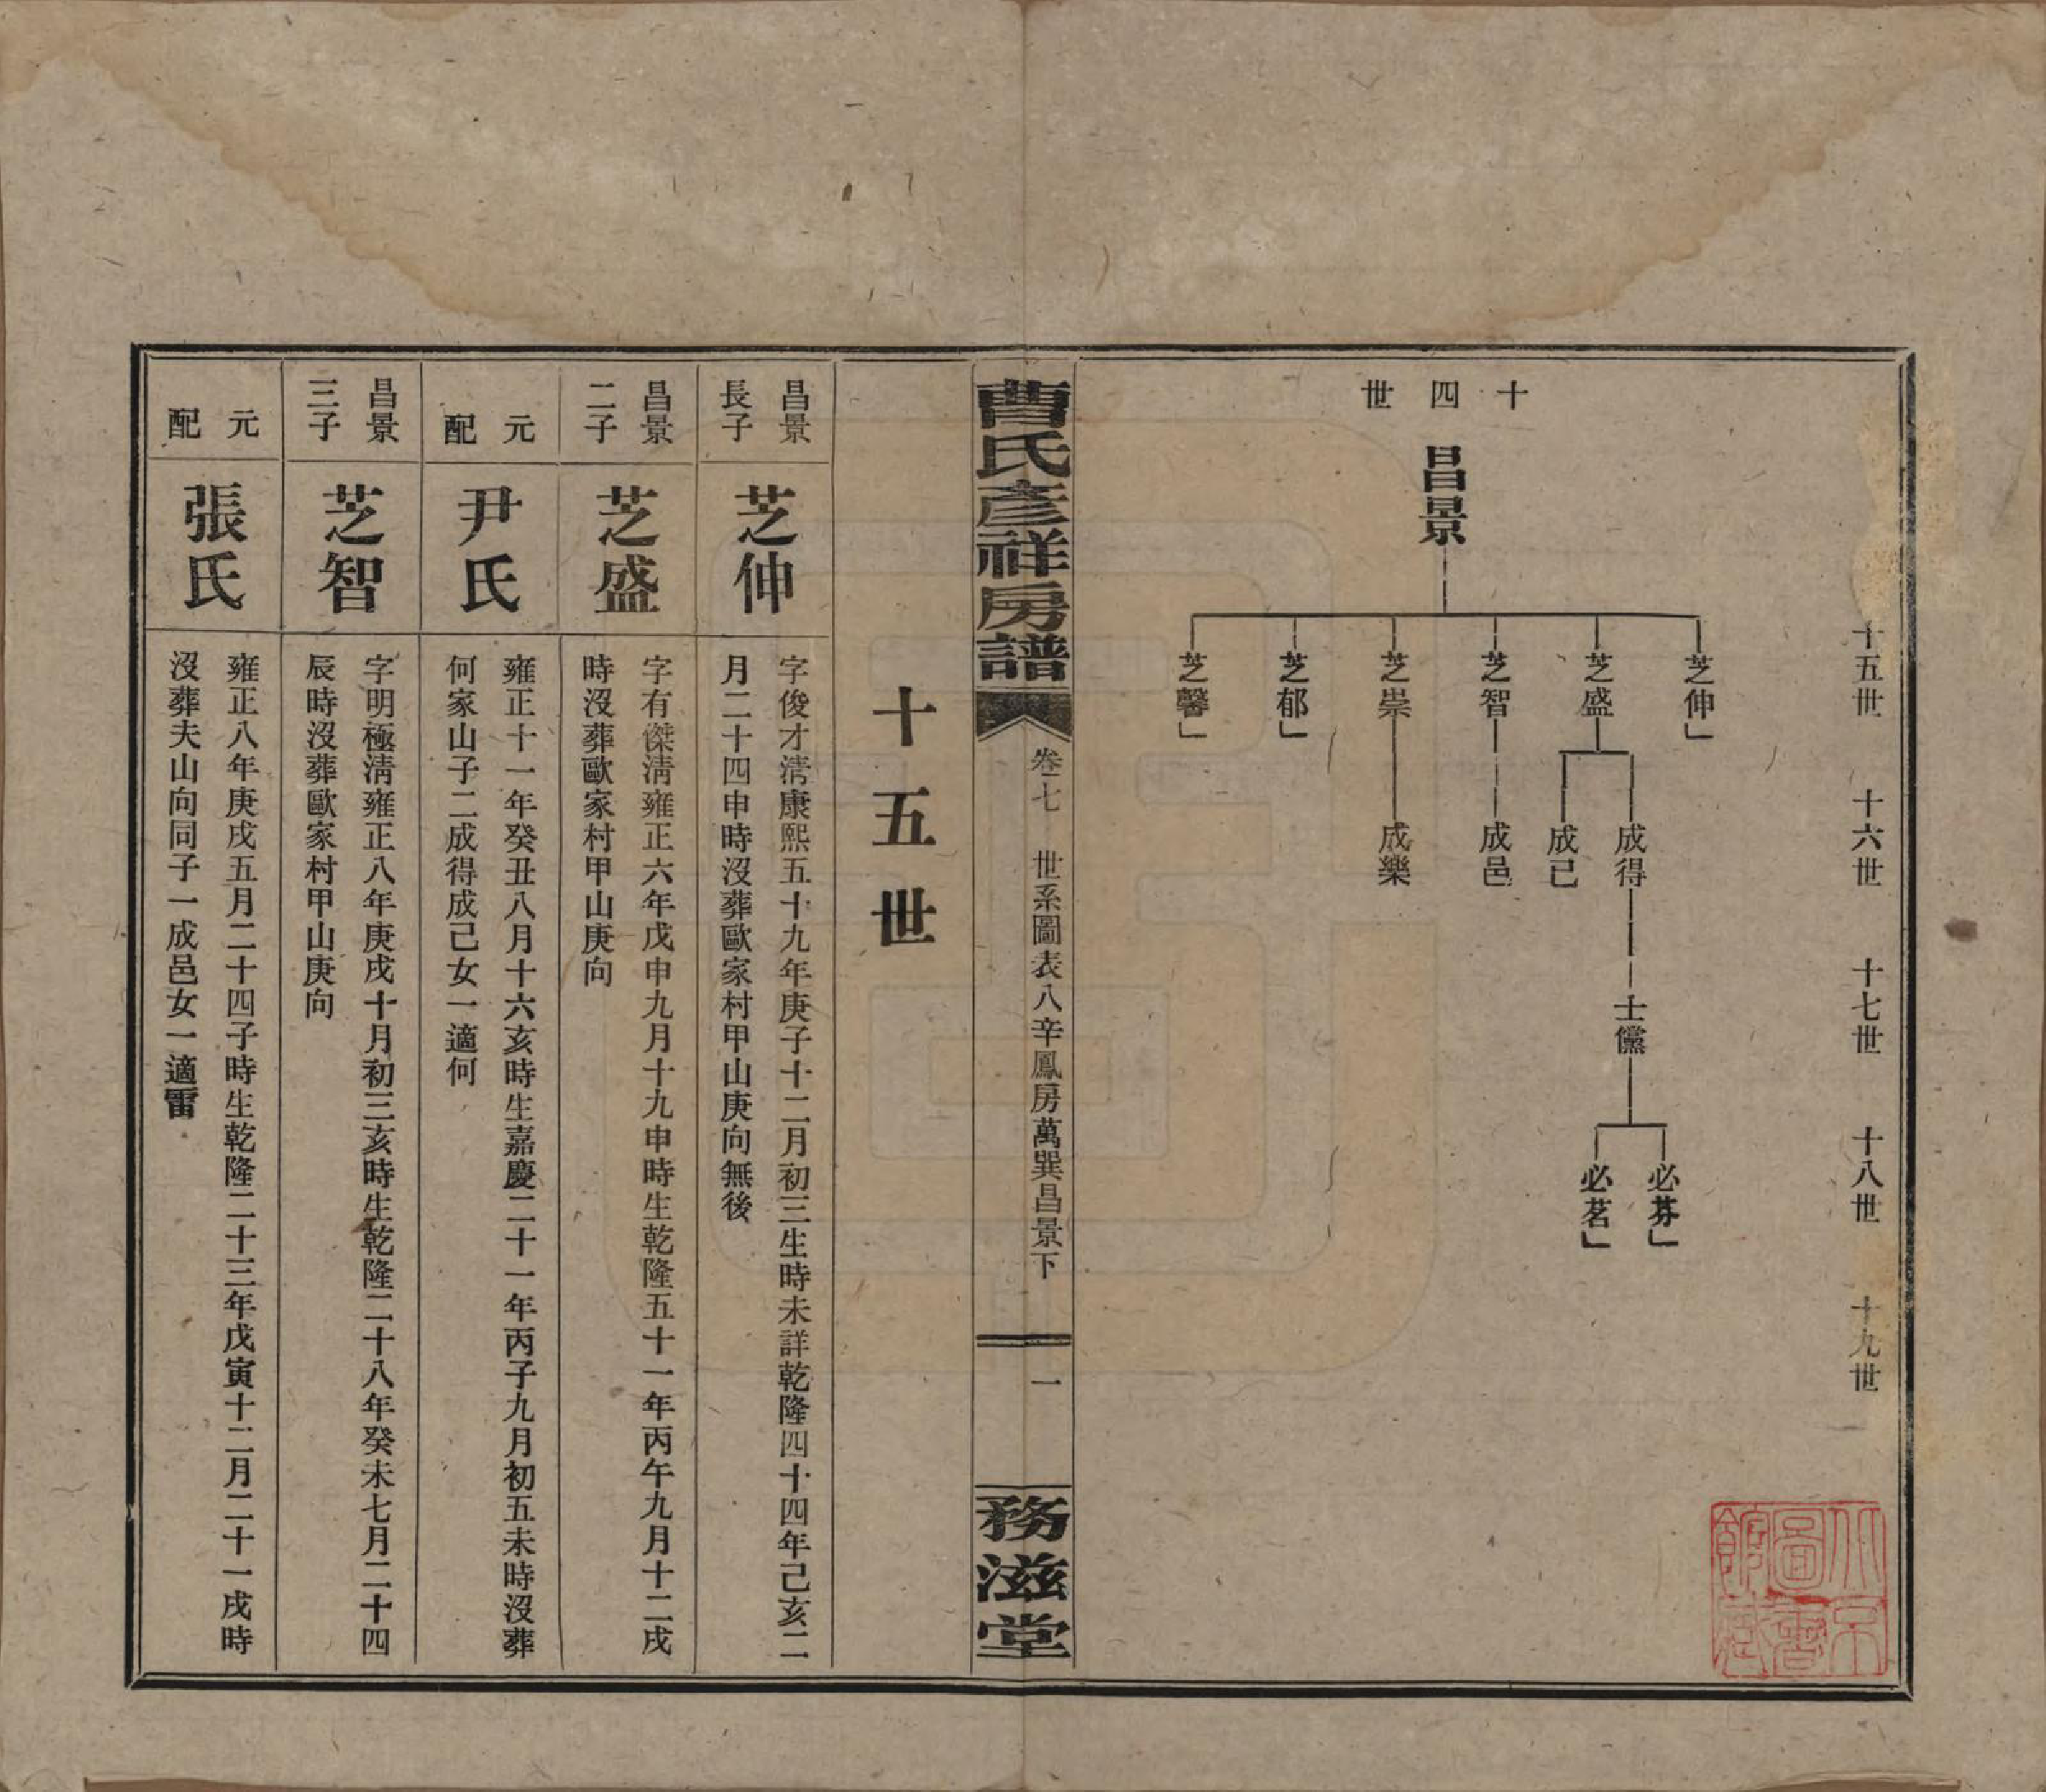 十五世
十六世
十七世
十八世
十九世
十四世
昌景
芝伸」
芝盛
芝智
芝崇
芝郁」
芝馨」
成得
成己
成邑
成樂
士儻
必芬」
必茗」
北京圖書館藏
曹氏彥祥房譜
卷二七 世系圖表八辛鳳房萬巽昌景下
一
務滋堂
十五世
昌景長子
芝伸
字俊才清康熙五十九年庚子十二月初三生時未詳乾隆四十四年己亥二
月二十四申時沒葬歐家村甲山庚向無後
昌景二子
芝盛
字有傑清雍正六年戊申九月十九申時生乾隆五十一年丙午九月十二戌
時沒葬歐家村甲山庚向
元配
尹氏
雍正十一年癸丑八月十六亥時生嘉慶二十一年丙子九月初五未時沒葬
何家山子二成得成己女一適何
昌景三子
芝智
字明極清雍正八年庚戌十月初三亥時生乾隆二十八年癸未七月二十四
辰時沒葬歐家村甲山庚向
元配
張氏
雍正八年庚戌五月二十四子時生乾隆二十三年戊寅十二月二十一戌時
沒葬夫山向同子一成邑女一適雷